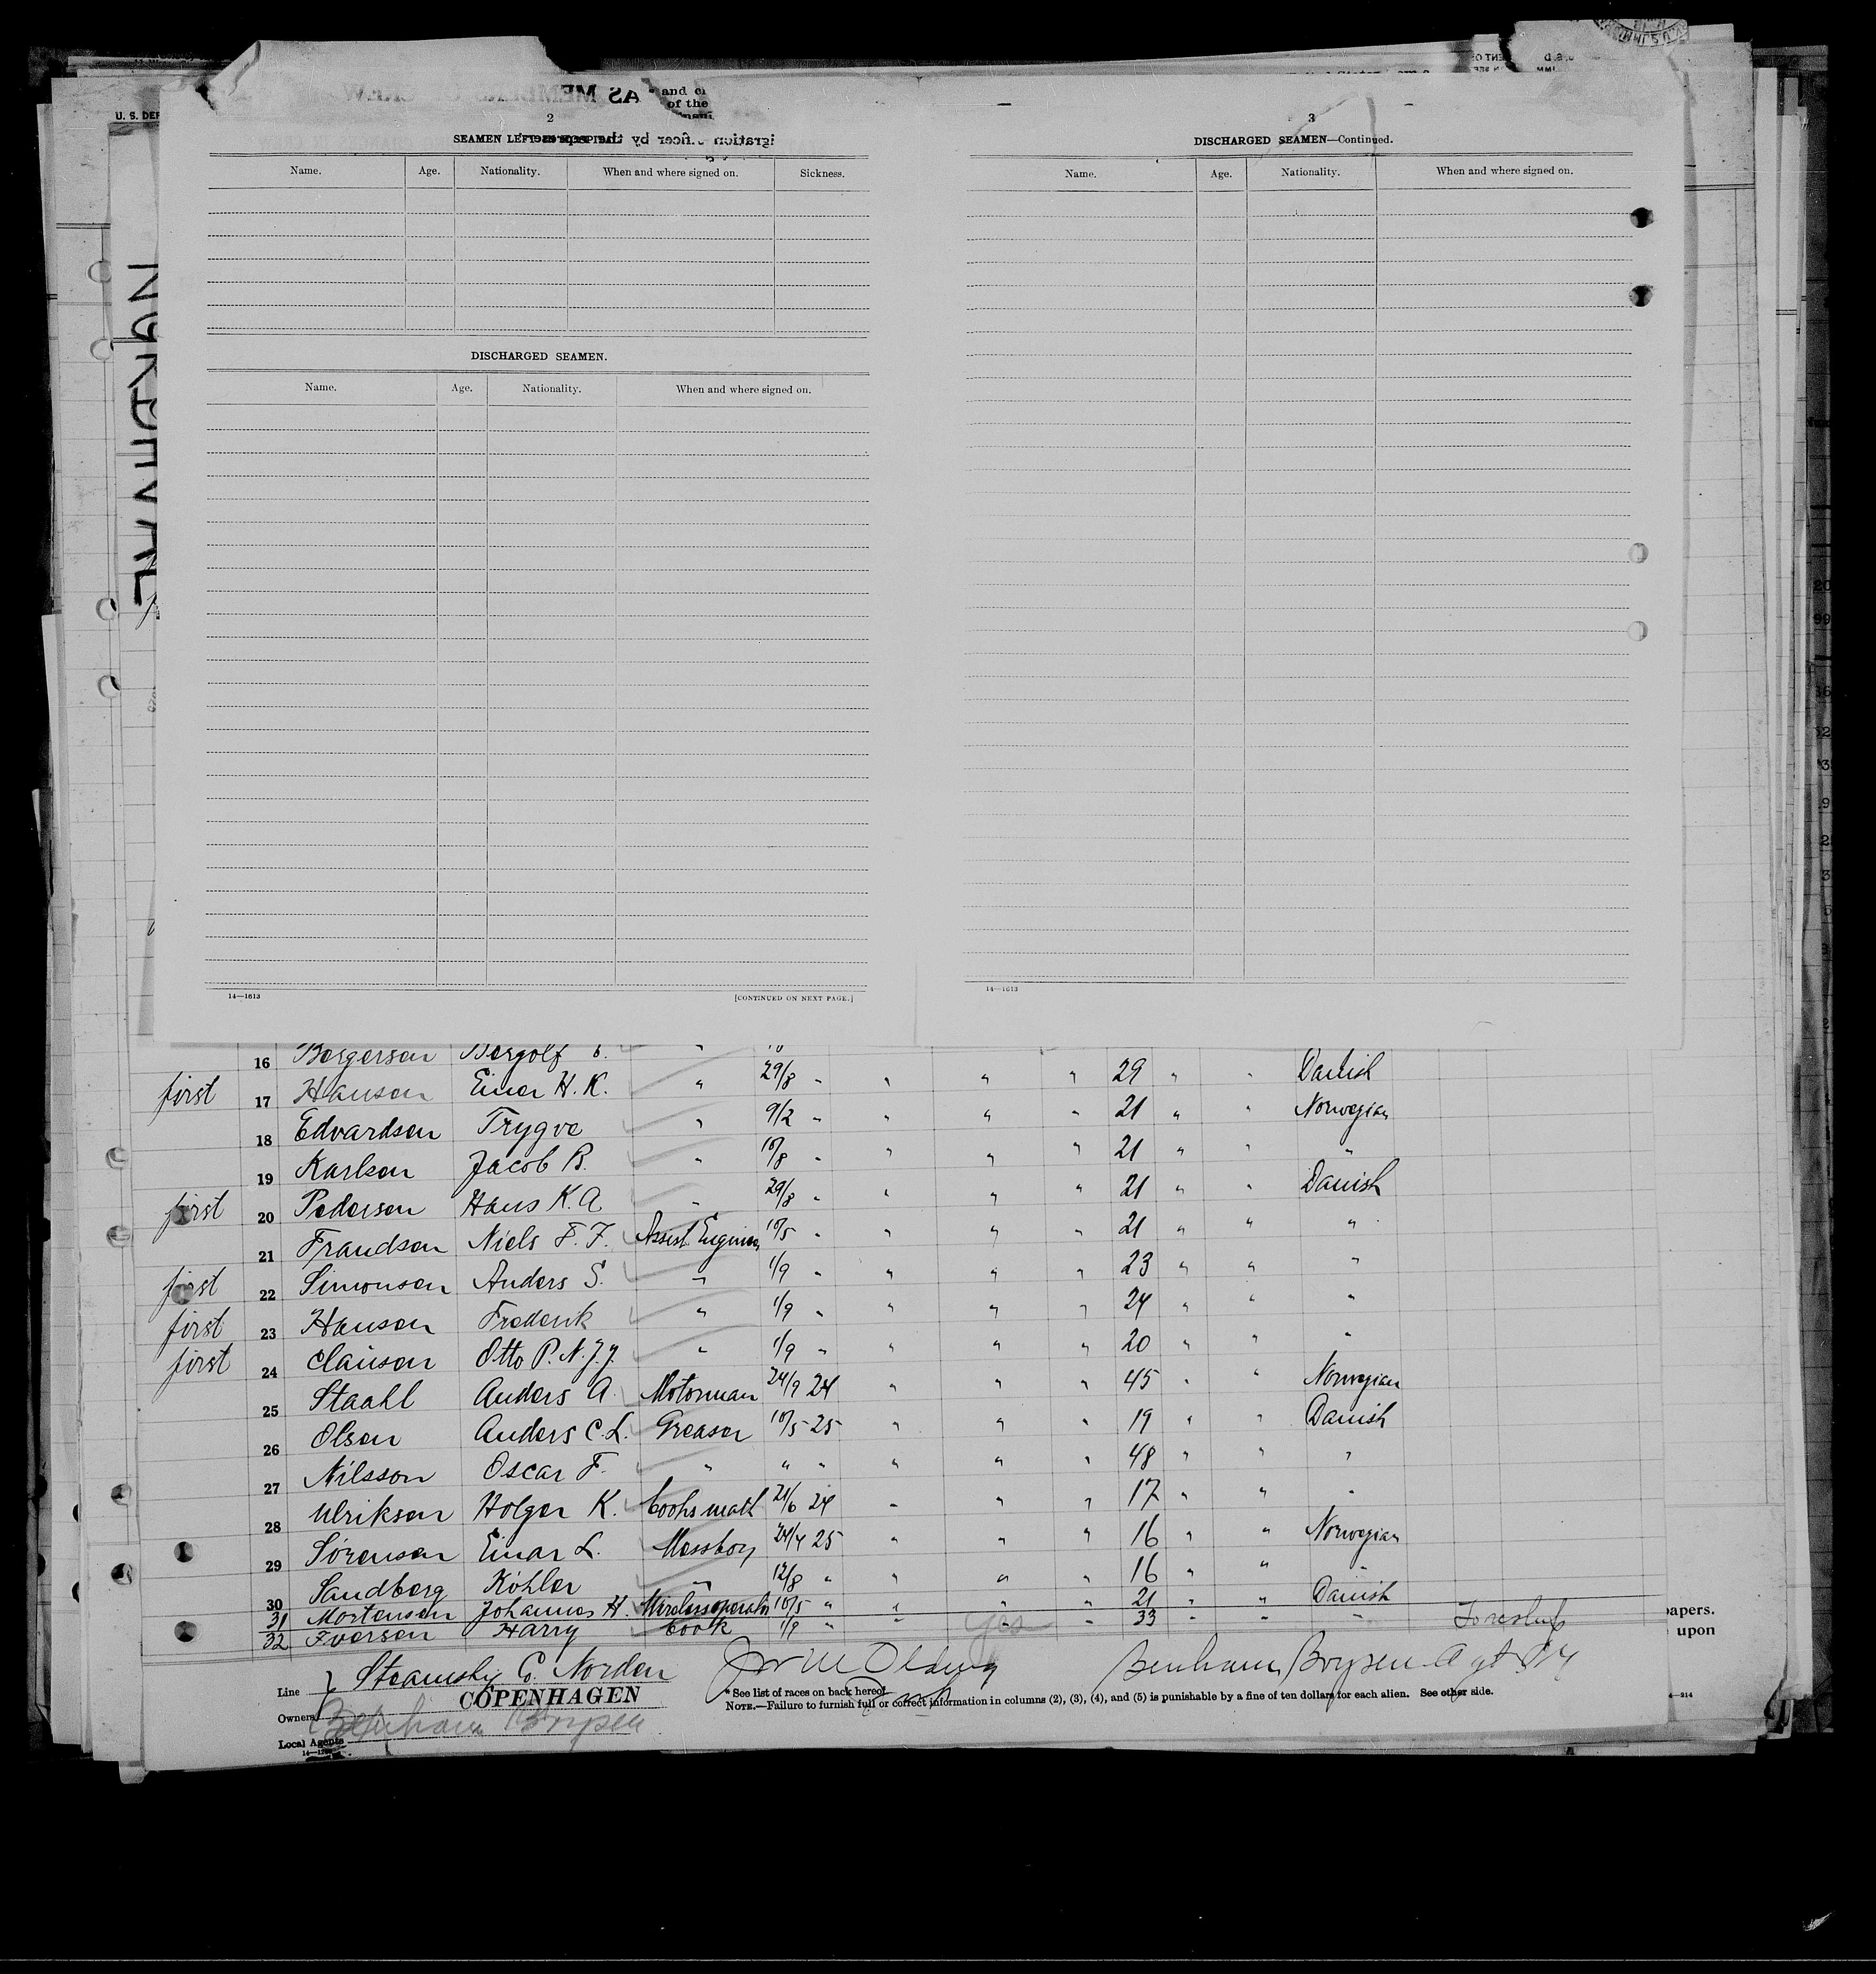 U. S. DEP
and cr
of the
2
SEAMEN LEFT IN HOSPITAL.
Name. Age. Nationality. When and where signed on. Sickness.
DISCHARGED SEAMEN.
Name. Age. Nationality. When and where signed on.
14—1613 [CONTINUED ON NEXT PAGE.]
3
DISCHARGED SEAMEN—Continued.
Name. Age. Nationality. When and where signed on.
14—1613
16 Borgersen
first 17 Hansen Einer H. K. " 29/8 " " " " 29 " " Danish
18 Edvardsen Trygve " 9/2 " " " " 21 " " Norwegian
19 Karlsen Jacob B. " 10/8 " " " " 21 " " "
first 20 Pedersen Hans K. A. " 29/8 " " " " 21 " " Danish
21 Frandsen Niels F. F. Assist. Engineer 10/5 " " " " 21 " " "
first 22 Simonsen Anders S. " 1/9 " " " " 23 " " "
first 23 Hansen Frederik " 1/9 " " " " 24 " " "
first 24 Clausen Otto P. N. J. J. " 1/9 " " " " 20 " " "
25 Staahl Anders A. Motorman 24/9 24 " " " 45 " " Norwegian
26 Olsen Anders C. L. Greaser 10/5 25 " " " 19 " " Danish
27 Nilsson Oscar F. " " " " " " 48 " " "
28 Ulriksen Holger K. Cooks math 21/6 24 " " " 17 " " "
29 Sörensen Einar L. Messboy 24/4 25 " " " 16 " " Norwegian
30 Sandberg Köhler " 12/8 " " " " 16 " " "
31 Mortensen Johannes H. Wirelessoperator 10/5 " " " " 21 " " Danish
32 Iversen Harry Cook 1/9 " " yes " 33 " " "
papers.
upon
Line Steamship Co. Norden
Owners COPENHAGEN
Local Agents Benham Boysen
Benham Boysen Agt
* See list of races on back hereof.
NOTE.—Failure to furnish full or correct information in columns (2), (3), (4), and (5) is punishable by a fine of ten dollars for each alien. See other side.
4—214